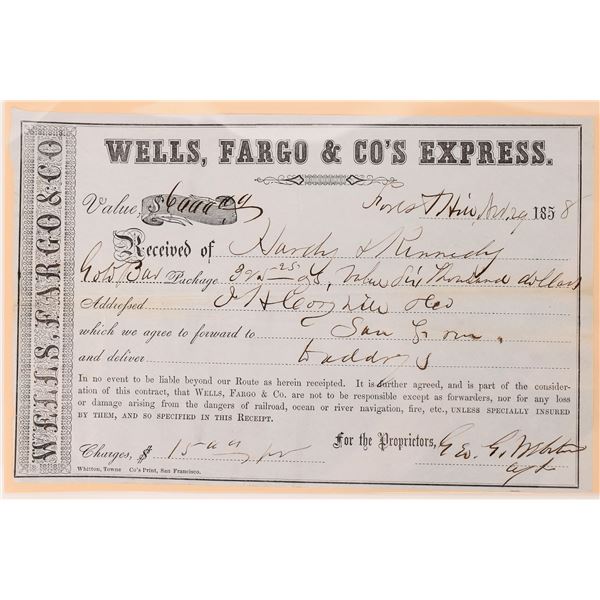 WELLS, FARGO & CO
WELLS, FARGO & CO'S EXPRESS.
Value, $6000
Forest Hill, 29 1858
Received of Hardy & Kennedy
Gold Bar Package 325 25 oz, Value Six Thousand dollars
Addressed J H Coghill & Co
which we agree to forward to San Fran.
and deliver to address
In no event to be liable beyond our Route as herein receipted. It is further agreed, and is part of the consider-
ation of this contract, that WELLS, FARGO & CO. are not to be responsible except as forwarders, nor for any loss
or damage arising from the dangers of railroad, ocean or river navigation, fire, etc., UNLESS SPECIALLY INSURED
BY THEM, AND SO SPECIFIED IN THIS RECEIPT.
For the Proprietors, Geo. G. Webster
Agt
Charges, $ 15
Whitton, Towne Co's Print, San Francisco.